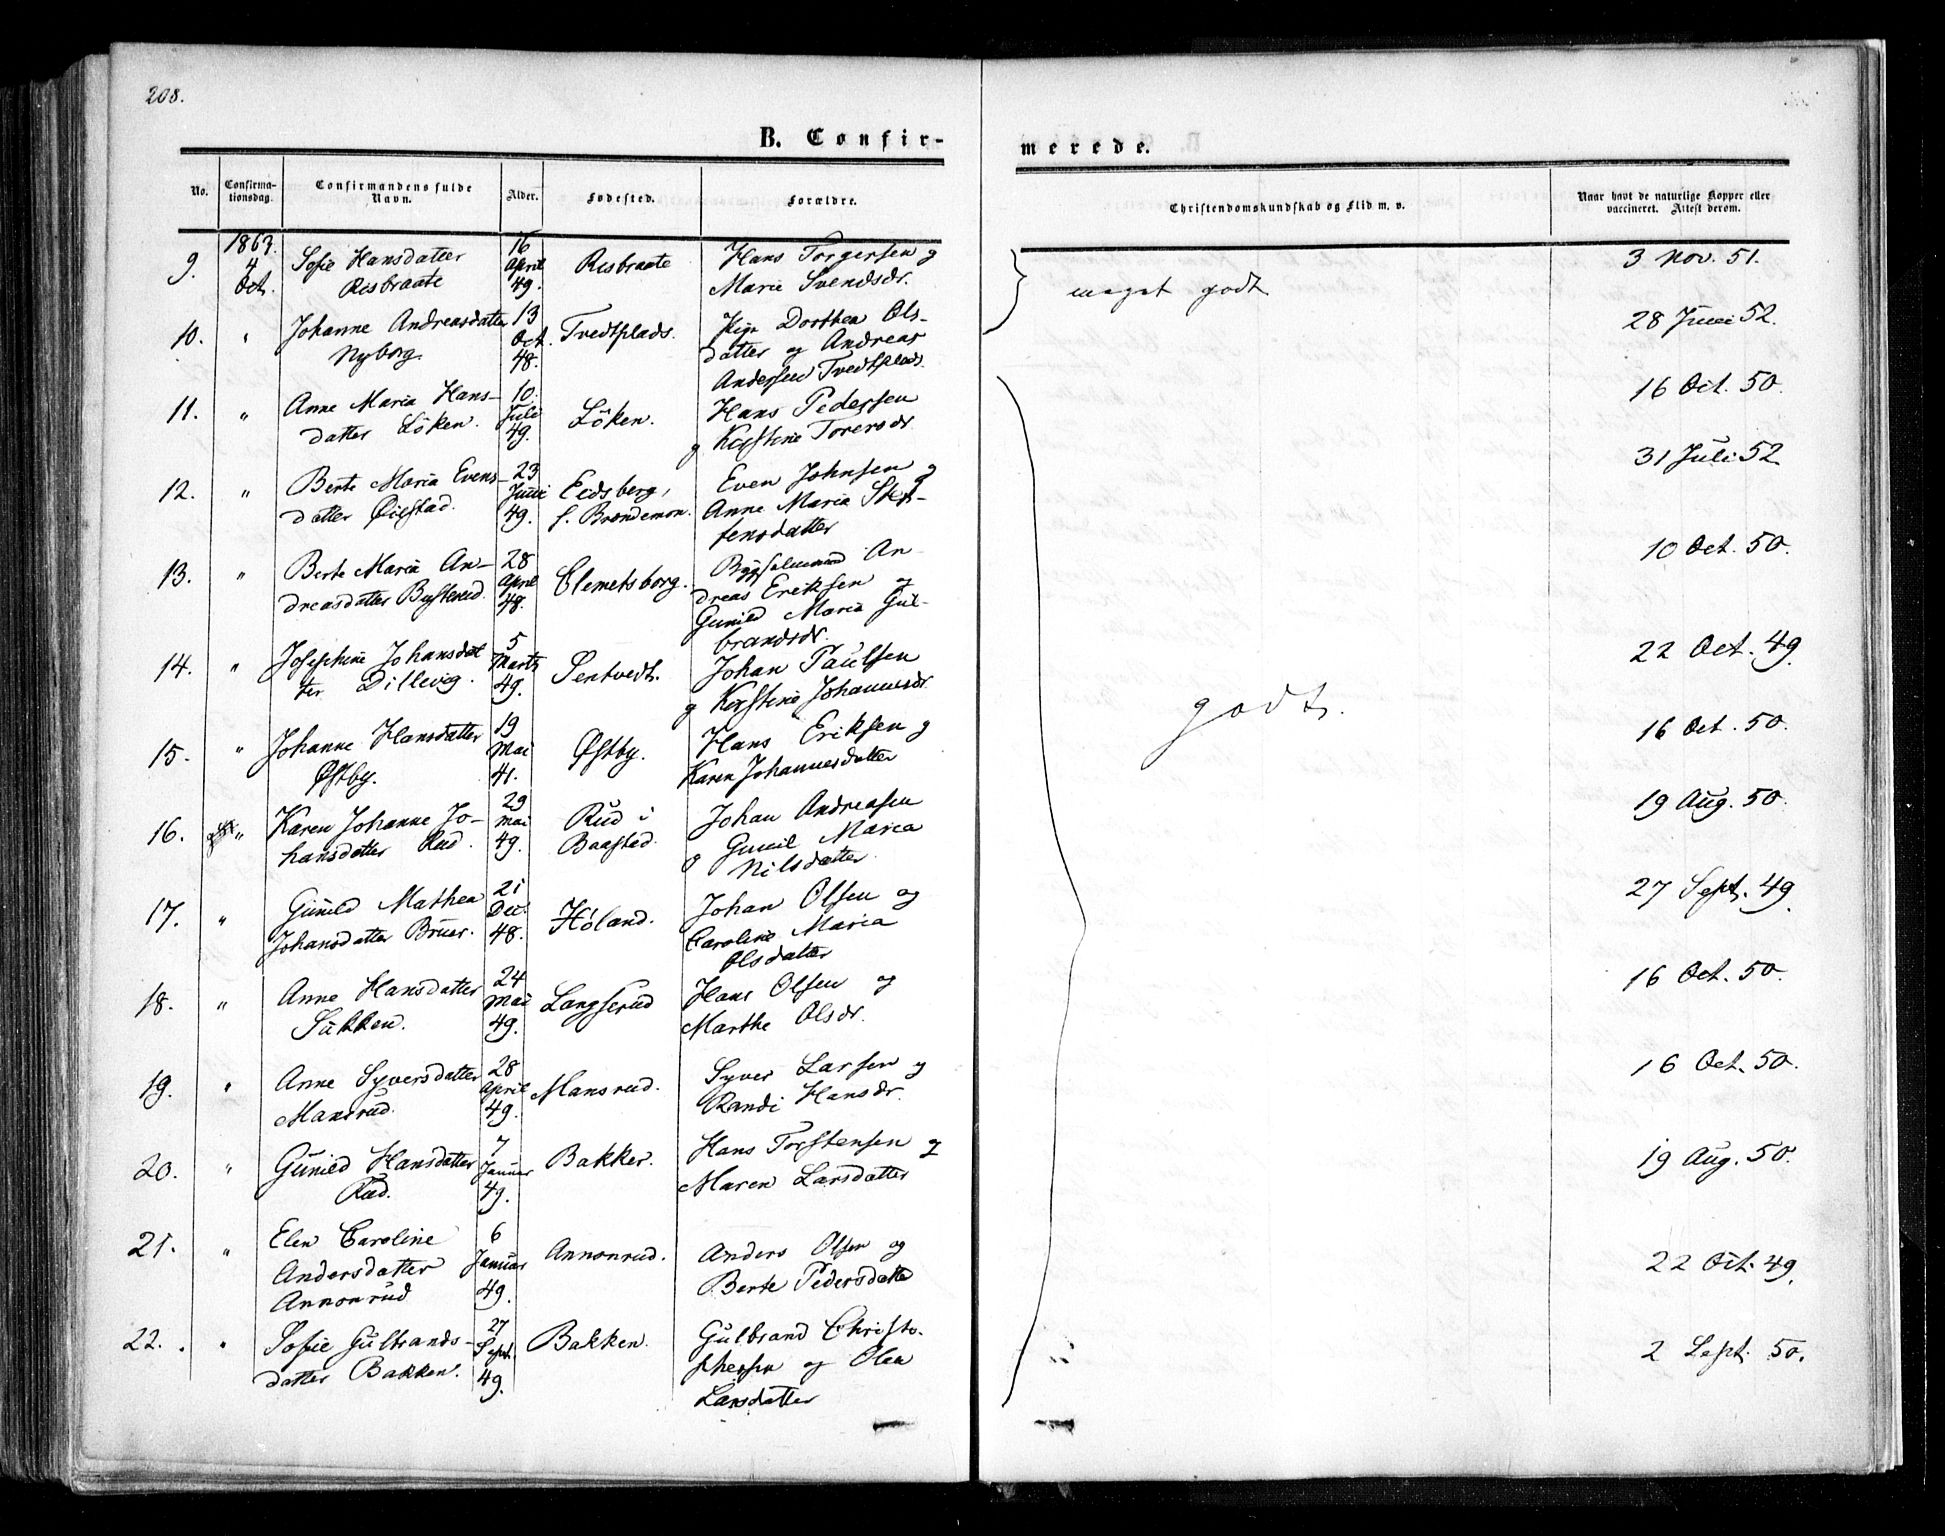 208.
B. Confir-
merede.
No.
Confirma-
tionsdag.
Confirmandens fulde
Navn.
Alder.
Fødested.
Forældre.
Christendomskundskab og Flid m. v.
Naar havt de naturlige Kopper eller
vaccineret. Attest derom.
9.
1863.
4
Oct.
Sofie Hansdatter
Risbraate
16
April
49.
Risbraate
Hans Torgersen og
Marie Svendsdr.
meget godt
3 Nov. 51.
10.
"
Johanne Andreasdatter
Nyborg.
13
Oct.
48.
Tvedtplads.
Pige Dorthea Ols-
datter og Andreas
Andersen Tvedtplads
28 Juni 52.
11.
"
Anne Maria Hans-
datter Löken.
10.
Juli
49.
Löken.
Hans Pedersen
og Kirstine Torersdr
16 Oct. 50.
12.
"
Berte Maria Evens-
datter Öiestad.
23
Juni
49.
Eidsberg,
f. Brandemon.
Even Johnsen og
Anne Maria Stef-
fensdatter
31 Juli 52
13.
"
Berte Maria An-
dreasdatter Busterud.
28
April
48.
Clemetsborg.
Bygselmand An-
dreas Eriksen og
Gunild Maria Gul-
brandsdr.
10 Oct. 50.
14.
"
Josephine Johansdat
ter Dillevig.
5
Marts
49.
Sentvedt.
Johan Paulsen
og Kirstine Johannesdr.
godt.
22 Oct. 49.
15.
"
Johanne Hansdatter
Østby.
19
Mai
41.
Østby.
Hans Eriksen og
Karen Johannesdatter
16 Oct. 50.
16.
"
Karen Johanne Jo-
hansdatter Rud.
29
Mai
49.
Rud i
Baastad.
Johan Andreasen
og Gunil Maria
Nilsdatter
19 Aug. 50.
17.
"
Gunild Mathea
Johansdatter Bruer.
21
Dec.
48.
Höland.
Johan Olsen og
Caroline Maria
Olsdatter
27 Sept. 49.
18.
"
Anne Hansdatter
Sukken.
24
Mai
49.
Langserud
Hans Olsen og
Marthe Olsdr.
16 Oct. 50.
19.
"
Anne Syversdatter
Mansrud.
28
April
49.
Mansrud.
Syver Larsen og
Randi Hansdr.
16 Oct. 50.
20.
"
Gunild Hansdatter
Rud.
7
Januar
49.
Bakker.
Hans Torstensen og
Maren Larsdatter
19 Aug. 50.
21.
"
Elen Caroline
Andersdatter
Annonrud
6
Januar
49.
Annonrud.
Anders Olsen og
Berte Pedersdatter
22 Oct. 49.
22.
"
Sofie Gulbrands-
datter Bakken.
27
Sept.
49.
Bakken.
Gulbrand Christo-
phersen og Olea
Larsdatter
2 Sept. 50.